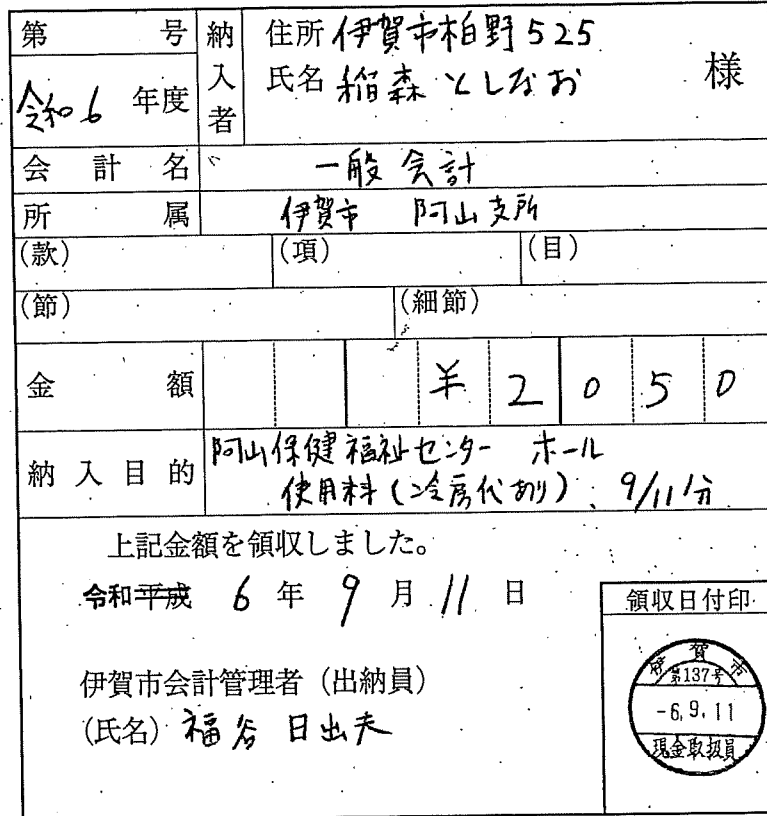 第 号
納入者
住所 伊賀市柏野525
氏名 稲森 としなお 様
令和6 年度
会計名 一般会計
所属 伊賀市 阿山支所
(款) (項) (目)
(節) (細節)
金額 ¥2050
納入目的 阿山保健福祉センター ホール
使用料(冷房代あり)、9/11分
上記金額を領収しました。
令和平成 6年 9月 11日
領収日付印
伊賀市会計管理者(出納員)
(氏名) 福谷 日出夫
伊賀市
第137号
-6.9.11
現金取扱員